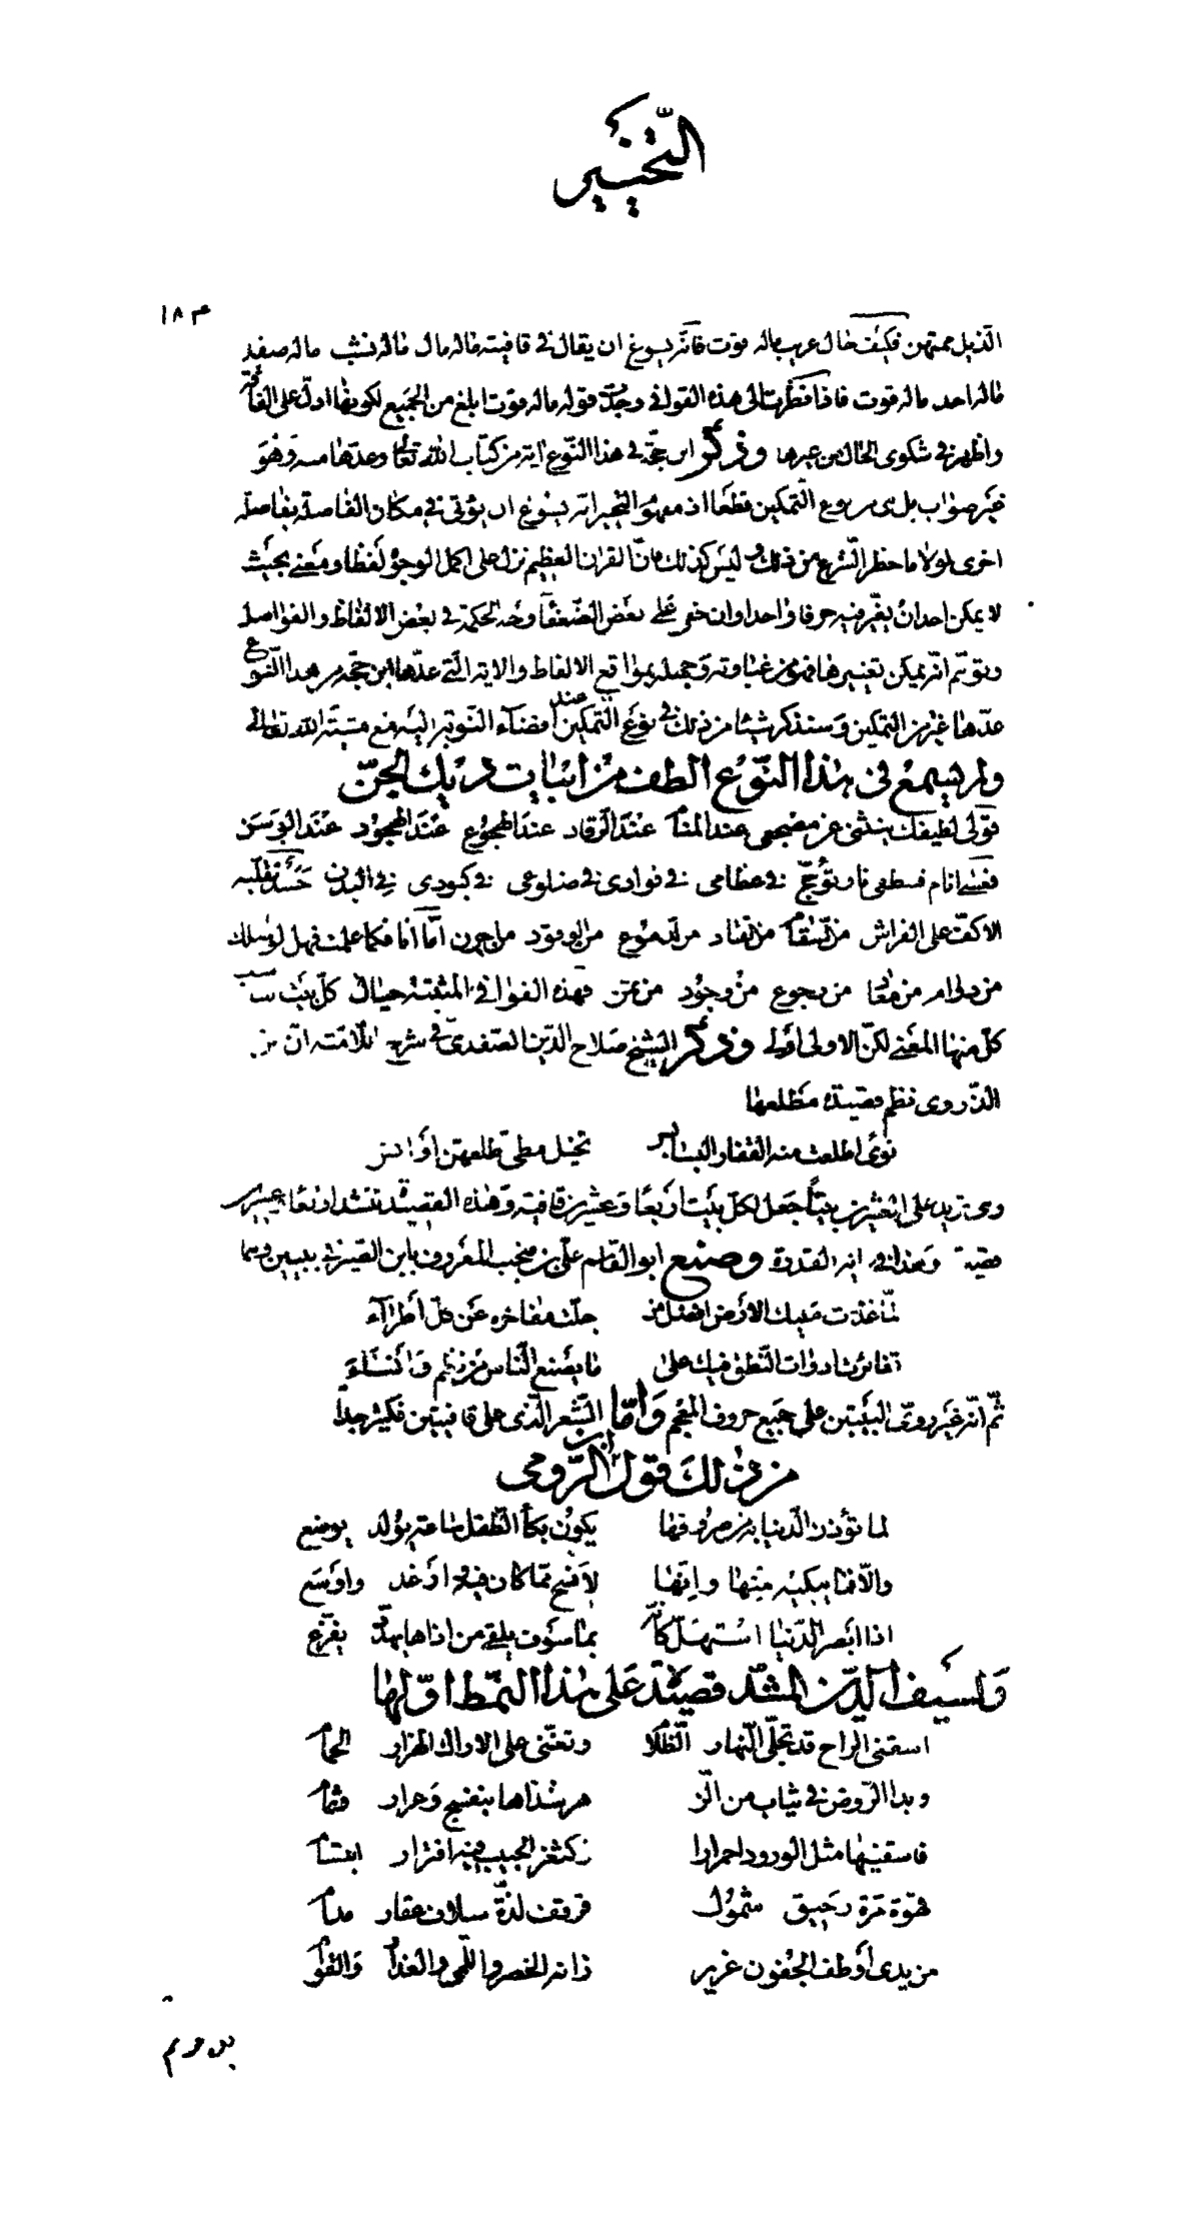 التخيير
١٨٣
الذيل ممتهن فكيف حال غريب ماله قوت فانه يسوغ ان يقال في قافيته ماله مال ماله نشب ماله صفد
ماله احد ماله قوت فاذا نظرت الى هذه القوافي وجدت قوله ماله قوت ابلغ من الجميع لكونها ادل على الفاقة
واظهر في شكوى الحال من غيرها وذكر ابن حجة في هذا النوع اية من كتاب الله تعالى وعدها منه وهو
غير صواب بل من نوع التمكين قطعا اذ مفهوم التخيير انه يسوغ ان يؤتى في مكان الفاصلة بفاصلة
اخرى لولا ما حظر الشرع من ذلك وليس كذلك فان القران العظيم نزل على اكمل الوجوه لفظا ومعنى بحيث
لا يمكن احد ان يغير فيه حرفا واحدا وان خفي على بعض الضعفا وجه الحكمة في بعض الالفاظ والفواصل
وتوهم انه يمكن تغييرها فهو من غباوته وجهله بمواقع الالفاظ والاية التي عدها ابن حجة من هذا النوع
عدها غيره من التمكين وسنذكر شيئا من ذلك في نوع التمكين عند افضاء النوبة اليه مع مشية الله تعالى
ولم يسمع في هذا النوع الطف من ابيات ديك الجن
قولي لطيفك ينثني عن مضجعي عند المنام عند الرقاد عند الهجوع عند الهجود عند الوسن
فعسى انام فتنطفي نار تؤجج في عظامي في فوادي في ضلوعي في كبودي في البدن جسد تقلبه
الاكف على الفراش من سقام من قتاد من دموع من وقود من حزن اما انا فكما علمت فهل لوصلك
من دوام من معاد من رجوع من وجود من ثمن فهذه القوافي المثبتة حيال كل بيت
كل منها المعنى لكن الاولى اولى وذكر الشيخ صلاح الدين الصفدي في شرح اللامية ان
الذروي نظم قصيدة مطلعها
نوى اطلعت منه القفار البسابس نخيل مطي طلعهن اوانس
وهي تزيد على العشرين بيتا جعل لكل بيت اربعا وعشرين قافية وهذه القصيدة تنشد اربعا وعشرين
قصيدة وهذا في القدرة وصنع ابو القاسم علي بن منجب المعروف بابن الصيرفي بيتين وهما
لما غذوت مليك الارض افضل من جلت مفاخره عن كل اطراء
تغايرت ادوات النطق فيك على ما يصنع الناس من نظم وانشاء
ثم انه غير روي البيتين على جميع حروف المعجم واما الشعر الذي على قافيتين فكثير جدا
من ذلك قول ابن الرومي
لما تؤذن الدنيا به من صروفها يكون بكاء الطفل ساعة يولد يوضع
والا فما يبكيه منها وانها لافسح مما كان فيه وارغد واوسع
اذا ابصر الدنيا استهل كانه بما سوف يلقى من اذاها يهدد يفزع
ولسيف الدين المشد قصيدة على هذا النمط اولها
اسقني الراح قد تجلى النهار الظلام وتغنى على الاراك الهزار الحمام
وبدا الروض في ثياب من الز هر شذاها بنفسج وعرار وثمام
فاسقنيها مثل الورود احمرارا زكثغر الحبيب فيه افترار ابتسام
قهوة مزة رحيق شمول قرقف لذة سلاف عقار مدام
من يدي اوطف الجفون غرير زانه الخصر واللمى والعذار والقوام